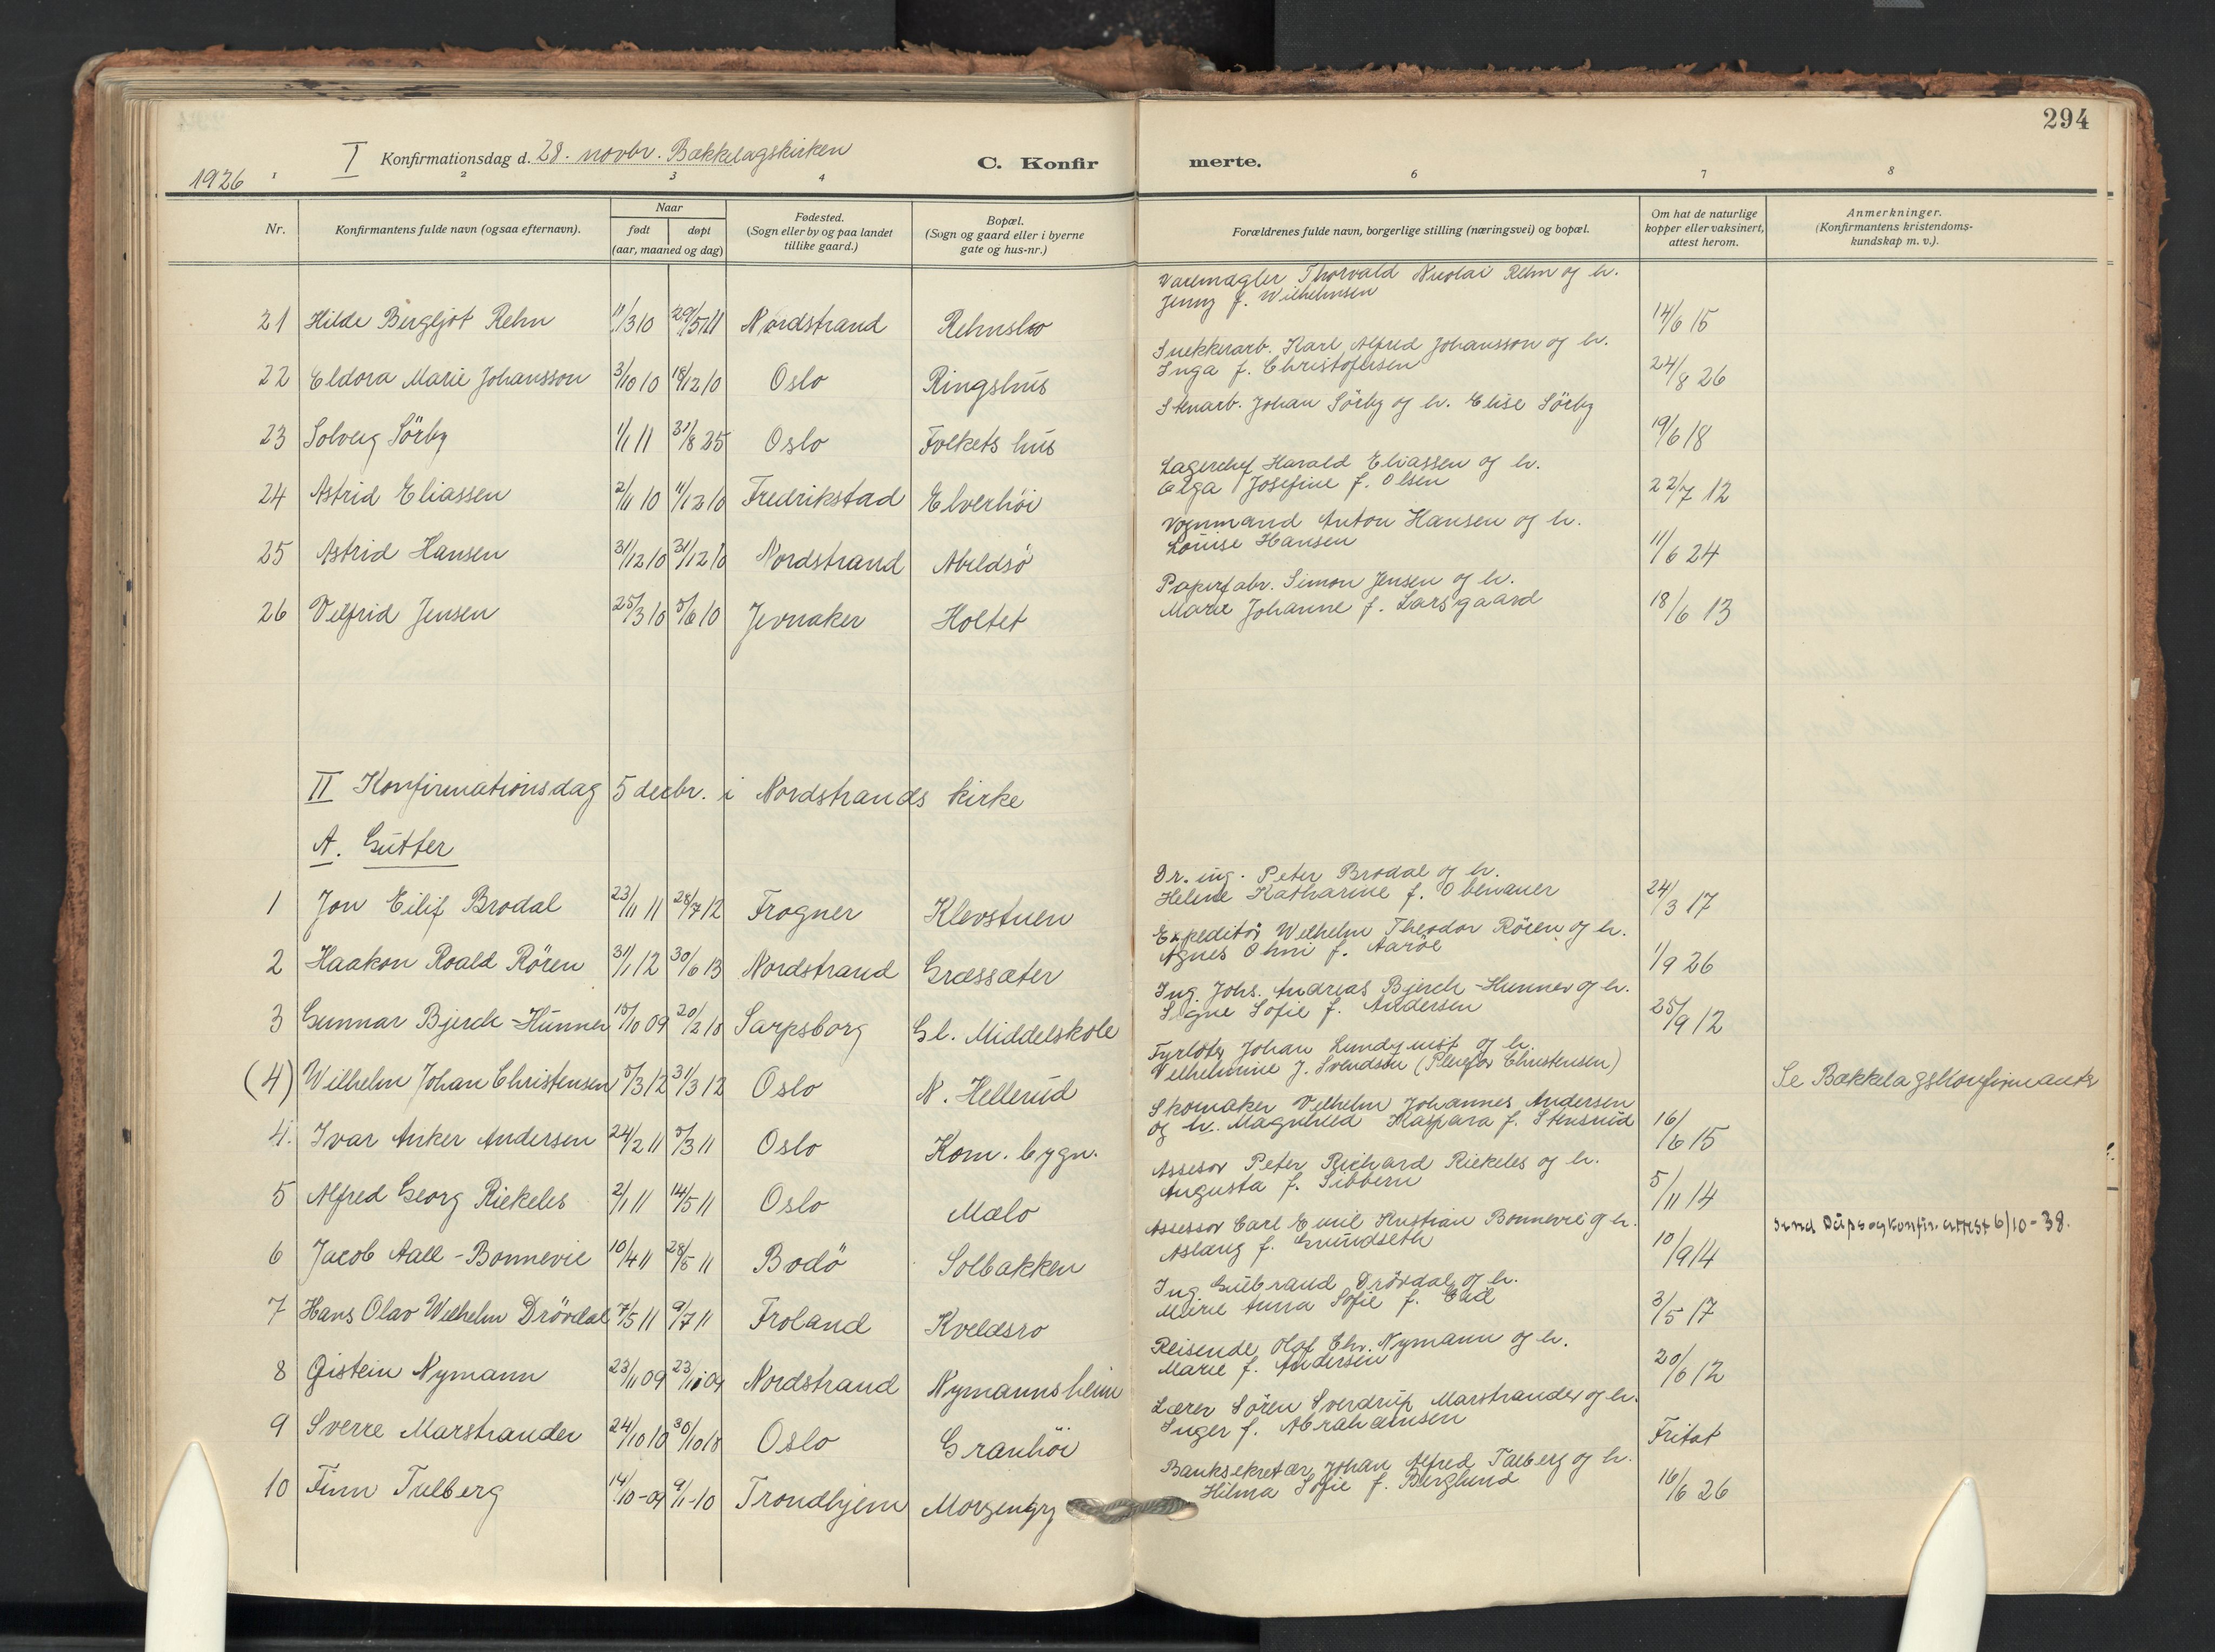 294
I Konfirmationsdag d. 28. novbr. Bækkelagskirken
C. Konfirmerte.
1926
1 2 3 4 6 7 8
Nr. | Konfirmantens fulde navn (ogsaa efternavn). | Naar født | døpt (aar, maaned og dag) | Fødested. (Sogn eller by og paa landet tillike gaard.) | Bopæl. (Sogn og gaard eller i byerne gate og hus-nr.) | Forældrenes fulde navn, borgerlige stilling (næringsvei) og bopæl. | Om hat de naturlige kopper eller vaksinert, attest herom. | Anmerkninger. (Konfirmantens kristendomskundskap m. v.).
21 | Hilde Bergljot Rehn | 11/3 10 | 29/5 11 | Nordstrand | Rehnslo | Varemægler Thorvald Nicolai Rehn og h. Jenny f. Wilhelmsen | 14/6 15
22 | Eldora Marie Johansson | 3/10 10 | 18/12 10 | Oslo | Ringshus | Snekkerarb. Karl Alfred Johansson og h. Inga f. Christofersen | 24/8 26
23 | Solveig Sörby | 1/1 11 | 31/8 25 | Oslo | Folkets hus | Stenarb. Johan Sörby og h. Elise Sörby | 19/6 18
24 | Astrid Eliassen | 2/11 10 | 11/12 10 | Fredrikstad | Elverhöi | Lagerchef Harald Eliassen og h. Olga Josefine f. Olsen | 22/7 12
25 | Astrid Hansen | 31/12 10 | 31/12 10 | Nordstrand | Abildsö | Vognmand Anton Hansen og h. Louise Hansen | 11/6 24
26 | Velfrid Jensen | 25/3 10 | 5/6 10 | Jevnaker | Holtet | Papirfabr. Simon Jensen og h. Marie Johanne f. Larsgaard | 18/6 13
II Konfirmationsdag 5 decbr. i Nordstrands kirke
A. Gutter
1 | Jon Eilif Brodal | 23/11 11 | 28/7 12 | Frogner | Klevstuen | Dr. ing. Peter Brodal og h. Helene Katharine f. Obenauer | 24/3 17
2 | Haakon Roald Rören | 31/1 12 | 30/6 13 | Nordstrand | Græssæter | Expeditör Wilhelm Theodor Rören og h. Agnes Omi f. Aaröe | 1/9 26
3 | Gunnar Bjerch-Hunner | 15/10 09 | 20/2 10 | Sarpsborg | Gl. Middelskole | Ing. Johs. Andreas Bjerch-Hunner og h. Signe Sofie f. Andersen | 25/9 12
(4) | Wilhelm Johan Christensen | 5/3 12 | 31/3 12 | Oslo | N. Hellerud | Fyrböter Johan Lundquist og h. Vilhelmine J. Svendsen (Pleiefor Christensen) | | Se Bækkelagskonfirmanter
4. | Ivar Anker Andersen | 24/2 11 | 5/3 11 | Oslo | Kom. bygn. | Skomaker Vilhelm Johannes Andersen og h. Magnhild Kaspara f. Stensrud | 16/6 15
5 | Alfred Georg Riekeles | 2/1 11 | 14/5 11 | Oslo | Mælo | Assesor Peter Richard Riekeles og h. Augusta f. Sibbern | 5/11 14
6 | Jacob Aall-Bonnevie | 10/4 11 | 28/5 11 | Bodö | Solbakken | Assessor Carl Emil Kristian Bonnevie og h. Aslaug f. Grundseth | 10/9 14 | Send Dåps og konfir. attest 6/10-38.
7 | Hans Olav Wilhelm Drövdal | 7/5 11 | 9/7 11 | Froland | Kveldsro | Ing. Gulbrand Drövdal og h. Marie Anna Sofie f. Eid | 3/5 17
8 | Öistein Nymann | 23/11 09 | 23/11 09 | Nordstrand | Nymannsheim | Reisende Olaf Chr. Nymann og h. Marie f. Andersen | 20/6 12
9 | Sverre Marstrander | 24/10 10 | 30/10 18 | Oslo | Granhöi | Lærer Sören Sverdrup Marstrander og h. Inger f. Abrahamsen | Fritat
10 | Finn Talberg | 14/10-09 | 9/1-10 | Trondhjem | Morgengry | Banksekretær Johan Alfred Talberg og h. Hilma Sofie f. Berglund | 16/6 26